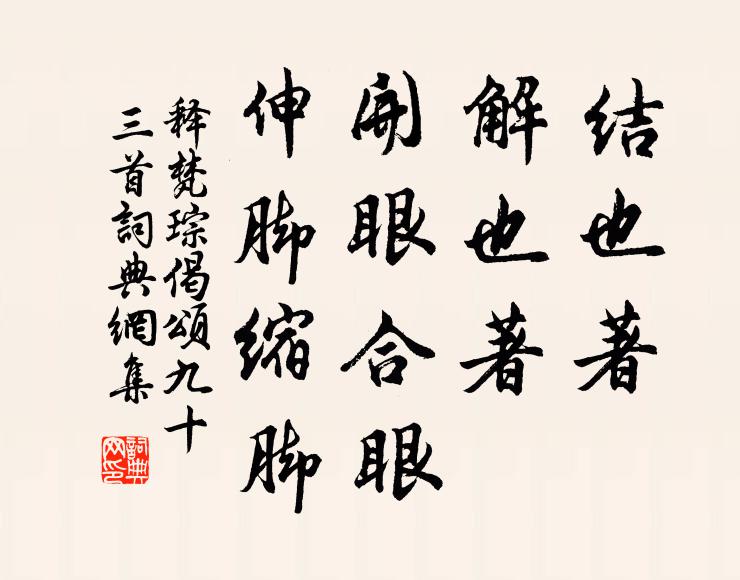 结也著
解也著
開眼合眼
伸脚缩脚
释梵琮偈頌九十
三首詞典網集
詞典网印